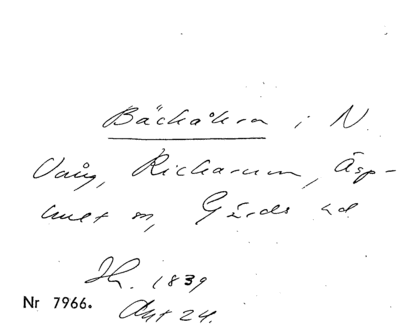 Bäckåkra i N.
Vång, Rickarum, Äsp-
huet sn, Gärds hd
H. 1839
Nr 7966. Akt 24.